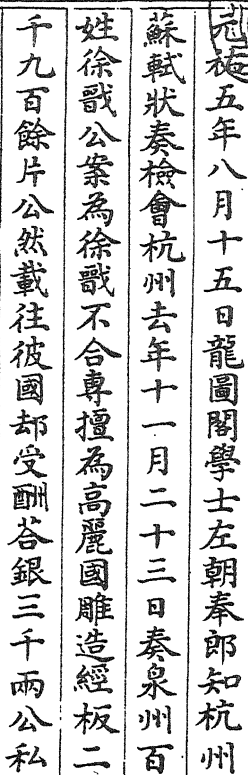 元祐五年八月十五日龍圖閣學士左朝奉郎知杭州
蘇軾狀奏檢會杭州去年十一月二十三日奏泉州百
姓徐戩公案為徐戩不合專擅為高麗國雕造經板二
千九百餘片公然載往彼國却受酬荅銀三千兩公私